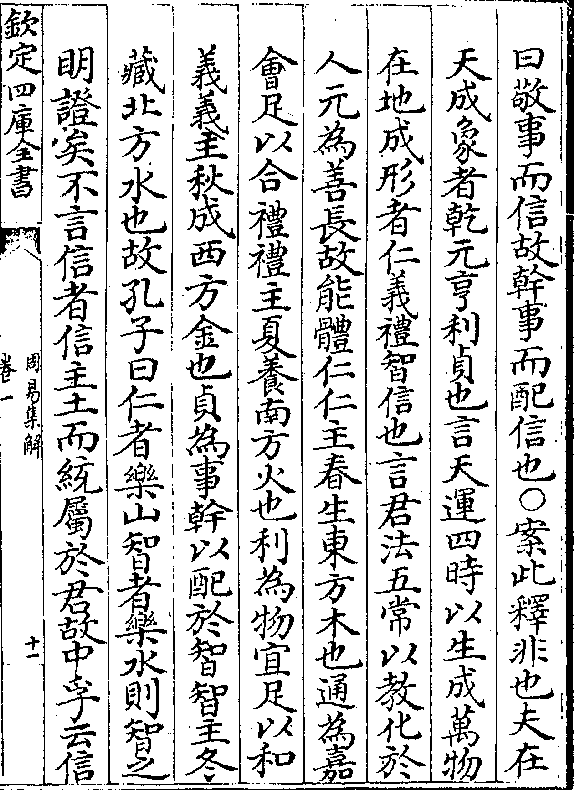 曰敬事而信故幹事而配信也○案此釋非也夫在
天成象者乾元亨利貞也言天運四時以生成萬物
在地成形者仁義禮智信也言君法五常以教化於
人元為善長故能體仁仁主春生東方木也通為嘉
會足以合禮禮主夏養南方火也利為物宜足以和
義義主秋成西方金也貞為事幹以配於智智主冬
藏北方水也故孔子曰仁者樂山智者樂水則智之
明證矣不言信者信主土而統屬於君故中孚云信
欽定四庫全書
周易集解
卷一
十一